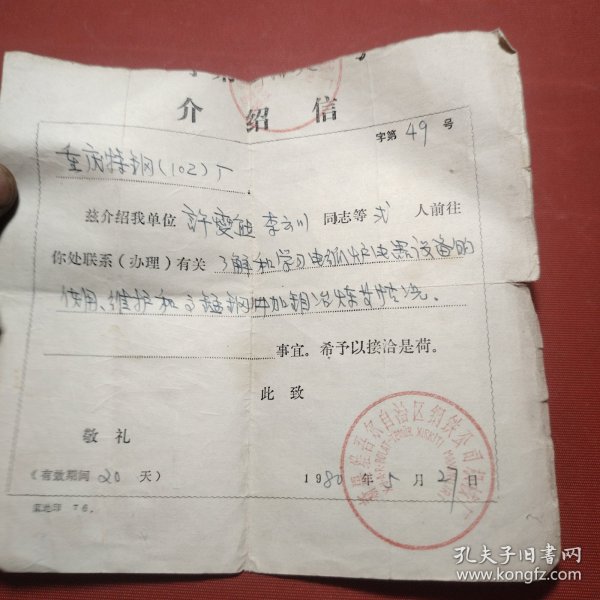 介绍信
字第 49 号
重庆特钢(102)厂
兹介绍我单位 許變能 李云川 同志等 弍 人前往
你处联系(办理)有关 了解和学习电弧炉电器设备的
使用、维护和高锰钢件加钼冶炼等情况.
事宜。希予以接洽是荷。
此致
敬礼
(有效期间 20 天)
1980 年 5 月 27 日
自治区钢铁公司
孔夫子旧书网
www.kongfz.com